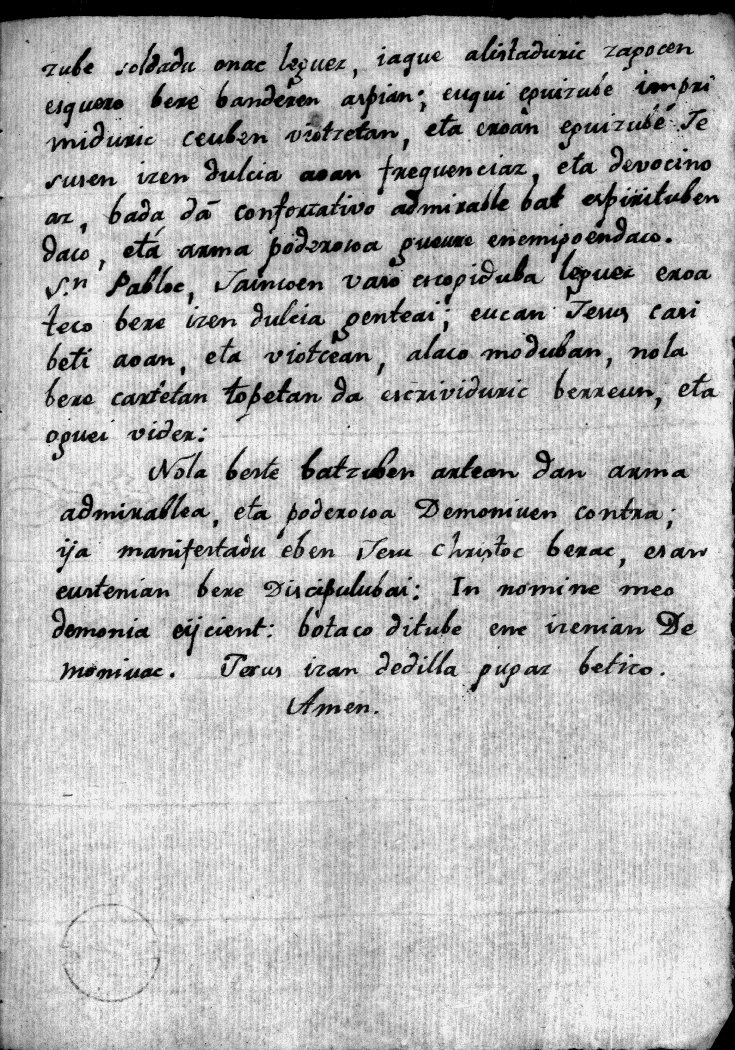 zube soldadu onac leguez, iaque alistaduric zagocen
esquero bere banderen aspian; euqui eguizube impri
miduric ceuben viotzetan, eta eroan eguizube Je
susen izen dulcia aoan frequenciaz, eta devocino
az, bada da confortativo admirable bat espirituben
daco, eta arma poderosa gueure enemigoendaco.
S.n Pabloc, Jaincoen vaso escogiduba leguez eroa
teco bere izen dulcia genteai; eucan Jesus casi
beti aoan, eta viotcean, alaco moduban, nola
bere cartetan topetan da escrividuric berreun, eta
oguei vider:
Nola beste batzuben artean dan arma
admirablea, eta poderosa Demoniuen contra;
ija manifestadu eben Jesu Christoc berac, esan
eustenian bere Discipulubai: In nomine meo
demonia eijcient: botaco ditube ene izenian De
moniuac. Jesus izan dedilla gugaz betico.
Amen.